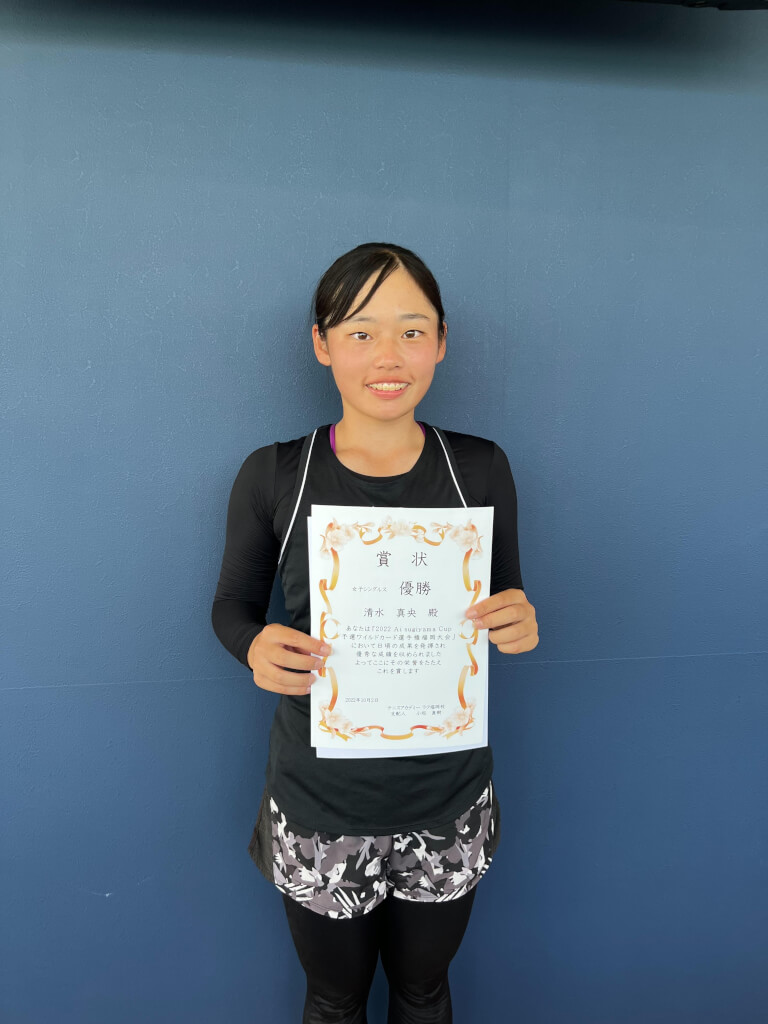 賞 状
女子シングルス 優勝
清水 真央 殿
あなたは「2022 Ai sugiyama Cup
予選ワイルドカード選手権福岡大会」
において日頃の成果を発揮され
優秀な成績を収められました
よってここにその栄誉をたたえ
これを賞します
2022年10月2日
テニスアカデミー
支配人 小松